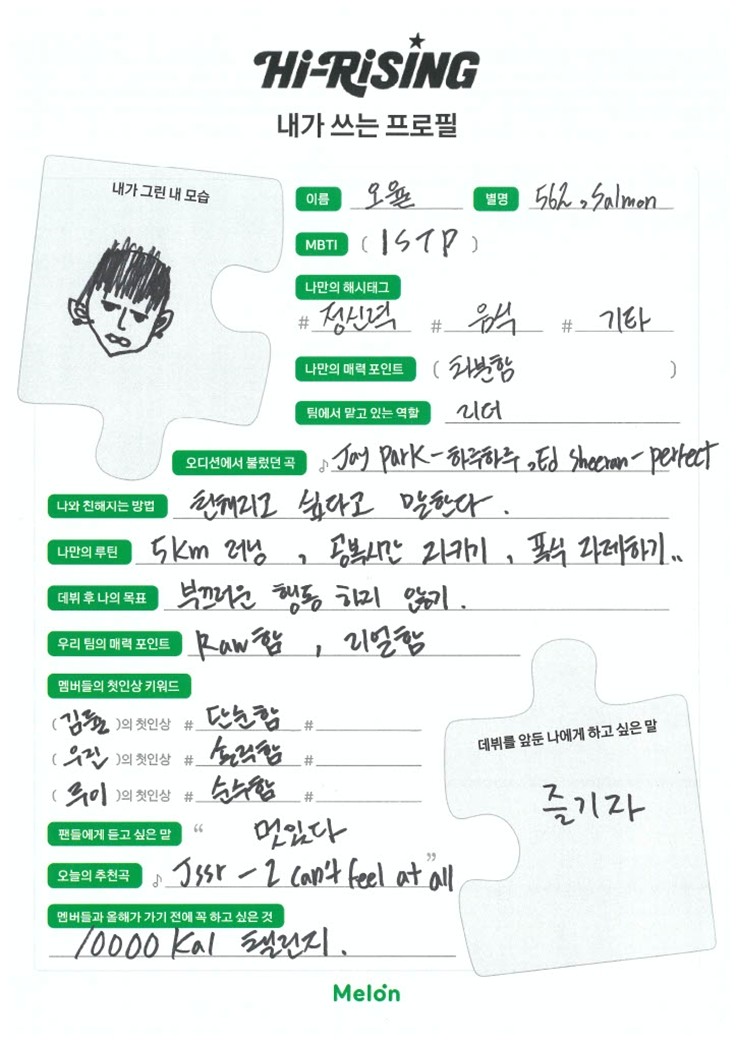 Hi-RiSiNG
내가 쓰는 프로필
내가 그린 내 모습
이름 오율 별명 562, Salmon
MBTI ( ISTP )
나만의 해시태그
# 정신력 # 음식 # 기타
나만의 매력 포인트 ( 차분함 )
팀에서 맡고 있는 역할 리더
오디션에서 불렀던 곡 ♪ Jay Park - 하루하루, Ed Sheeran - perfect
나와 친해지는 방법 친해지고 싶다고 말한다.
나만의 루틴 5km 러닝, 공복시간 지키기, 폭식 자제하기..
데뷔 후 나의 목표 부끄러운 행동 하지 않기.
우리 팀의 매력 포인트 Raw함, 리얼함
멤버들의 첫인상 키워드
( 김률 )의 첫인상 # 단순함 #
( 우진 )의 첫인상 # 솔직함 #
( 루이 )의 첫인상 # 순수함 #
팬들에게 듣고 싶은 말 “ 멋있다 ”
오늘의 추천곡 ♪ Jssr - I can't feel at all
멤버들과 올해가 가기 전에 꼭 하고 싶은 것
10000 Kal 챌린지.
데뷔를 앞둔 나에게 하고 싶은 말
즐기자
Melon